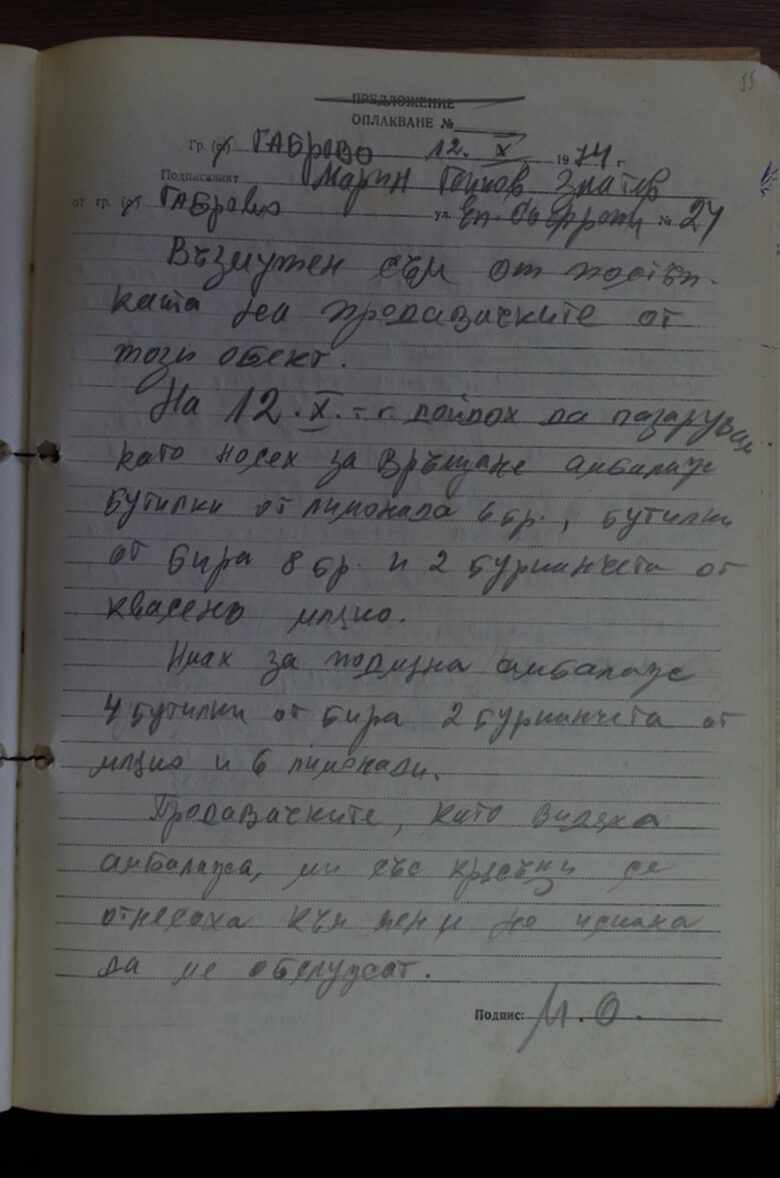 55
ПРЕДЛОЖЕНИЕ
ОПЛАКВАНЕ №
Гр. (с) ГАБРОВО 12. X 1974 г.
Подписаният Марин Златев
от гр. (с) Габрово ул. № 27
Възмутен съм от постъп-
ката на продавачките от
този обект.
На 12. X. - г. дойдох да пазарувам
като носех за връщане амбалаж
бутилки от лимонада 6 бр., бутилки
от бира 8 бр. и 2 бурканчета от
квасено мляко.
Имах за подмяна амбалаж
4 бутилки от бира 2 бурканчета от
мляко и 6 лимонади.
Продавачките, като видяха
амбалажа, ми със се
отнесоха към мен и не искаха
да ме обслужат.
Подпис: М. О.